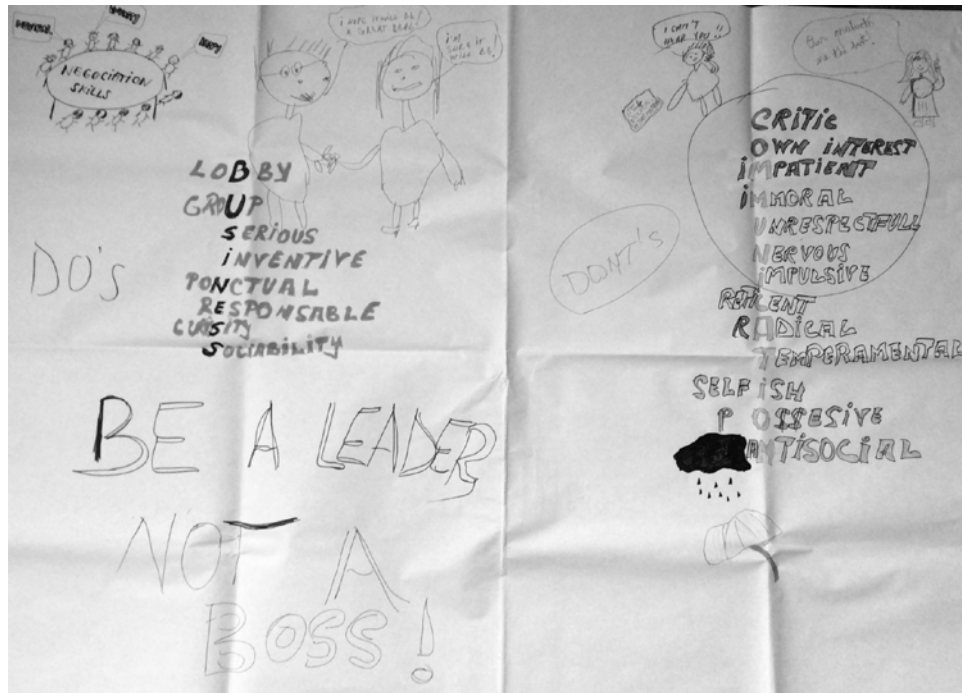 NEGOCIATION
SKILLS
i HOPE iT WiLL BE
A GREAT DEAL!
i'm
SURE iT
WiLL BE!
LOBBY
GROUP
SERIOUS
iNVENTIVE
PONCTUAL
RESPONSABLE
SOCIABiLITY
DO's
BE A LEADER
NOT A
BOSS!
i CAN'T
HEAR YOU !!
DONT's
CRiTiC
OWN iNTEREST
iMPATIENT
iMMORAL
UNRESPECTFULL
NERVOUS
iMPULSIVE
RETiCENT
RADiCAL
TEMPERAMENTAL
SELFiSH
POSSESIVE
ANTISOCIAL